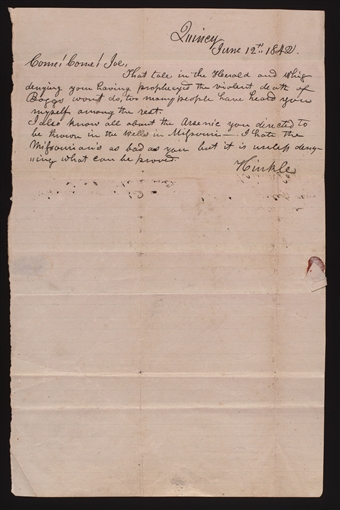 Quincy
June 12th 1842.
Come! Come! Joe,
That tale in the Herald and Whig
denying you having prophesyed the violent death of
Boggs wont do, too many people have heard you
myself among the rest.
I also know all about the Arsenic you directed to
be thrown in the Wells in Missouri — I hate the
Missourians as bad as you but it is useless deny-
-ing what can be proved.
Hinkle